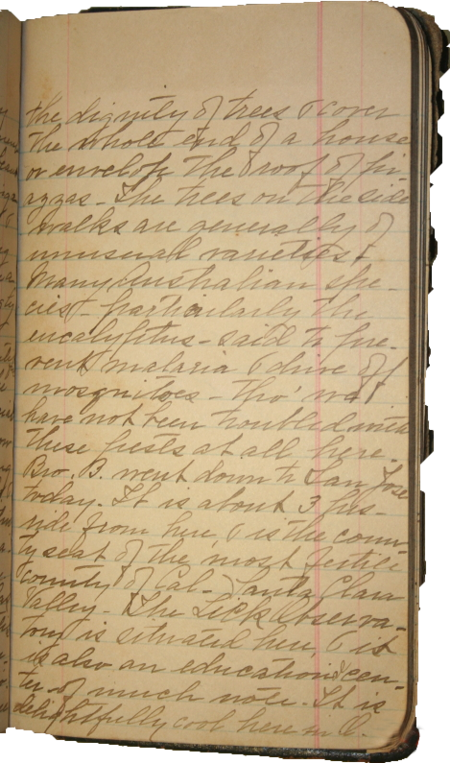 the dignity of trees & cover
the whole end of a house
or envelop the roof of pi-
azzas - The trees on the side
walks are generally of
unusual varieties &
many Australian spe-
cies - particularly the
eucalyptus - said to pre-
vent malaria & drive off
mosquitoes - tho' we
have not been troubled with
these pests at all here.
Bro. B. went down to San Jose
today. It is about 3 hrs-
ride from here, & is the coun-
ty seat of the most fertile
county of Cal - Santa Clara
Valley - The Lick Observa-
tory is situated here, & it
is also an educational cen-
ter of much note. It is
delightfully cool here in O.